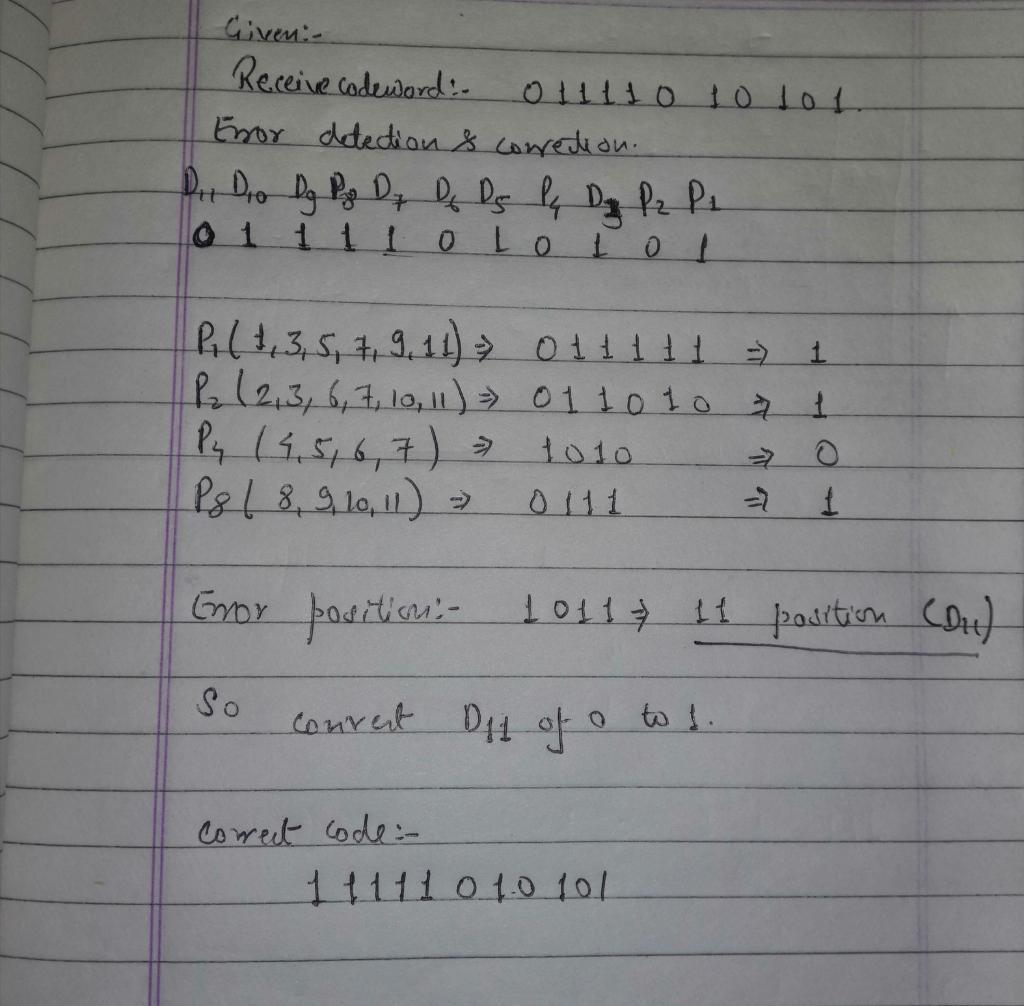 Given:-
Receive codeword:- 01111010101.
Error detection & correction.
D11 D10 D9 P8 D7 D6 D5 P4 D3 P2 P1
0 1 1 1 1 0 1 0 1 0 1
P1 (1,3,5,7,9,11) ⇒ 011111 ⇒ 1
P2 (2,3,6,7,10,11) ⇒ 011010 ⇒ 1
P4 (4,5,6,7) ⇒ 1010 ⇒ 0
P8 (8,9,10,11) ⇒ 0111 ⇒ 1
Error position:- 1011 ⇒ 11 position (D11)
So convert D11 of 0 to 1.
correct code:-
11111010101